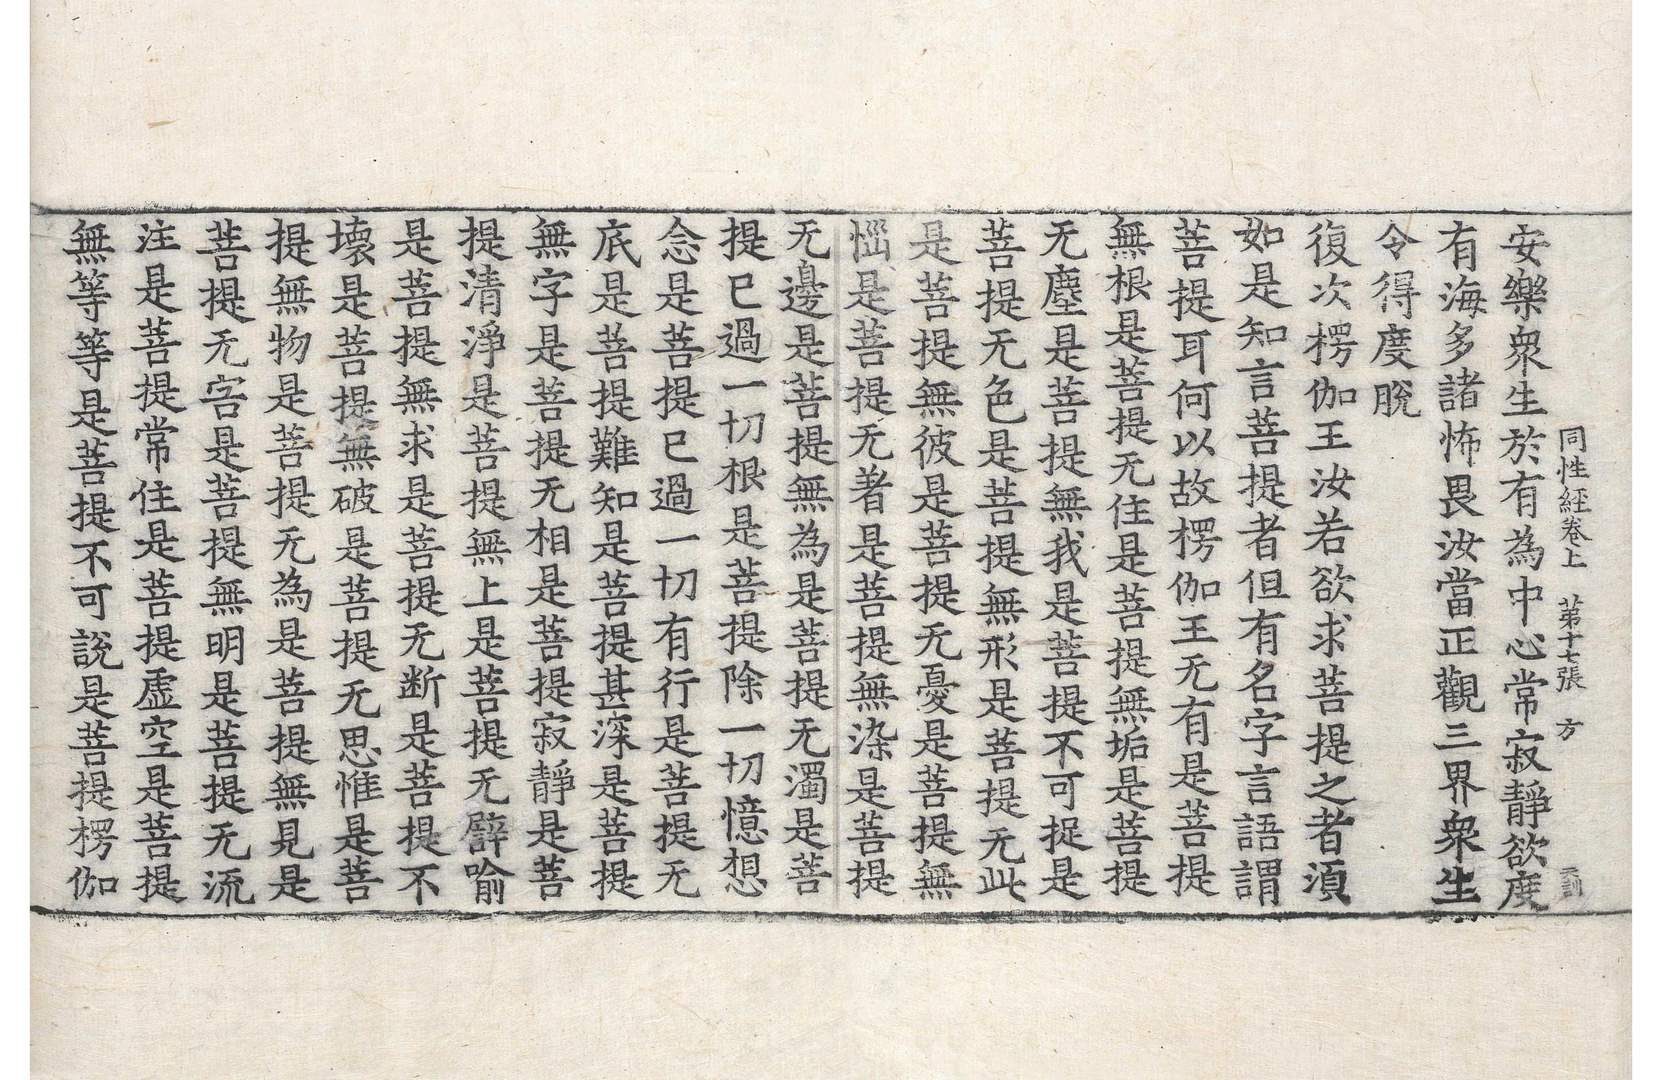 同性經卷上 第十七張 方
安樂衆生於有為中心常寂靜欲度
有海多諸怖畏汝當正觀三界衆生
令得度脫
復次楞伽王汝若欲求菩提之者須
如是知言菩提者但有名字言語謂
菩提耳何以故楞伽王无有是菩提
無根是菩提无住是菩提無垢是菩提
无塵是菩提無我是菩提不可捉是
菩提无色是菩提無形是菩提无此
是菩提無彼是菩提无憂是菩提無
惱是菩提无著是菩提無染是菩提
无邊是菩提無為是菩提无濁是菩
提已過一切根是菩提除一切憶想
念是菩提已過一切有行是菩提无
底是菩提難知是菩提甚深是菩提
無字是菩提无相是菩提寂靜是菩
提清淨是菩提無上是菩提无譬喻
是菩提無求是菩提无断是菩提不
壞是菩提無破是菩提无思惟是菩
提無物是菩提无為是菩提無見是
菩提无害是菩提無明是菩提无流
注是菩提常住是菩提虛空是菩提
無等等是菩提不可說是菩提楞伽